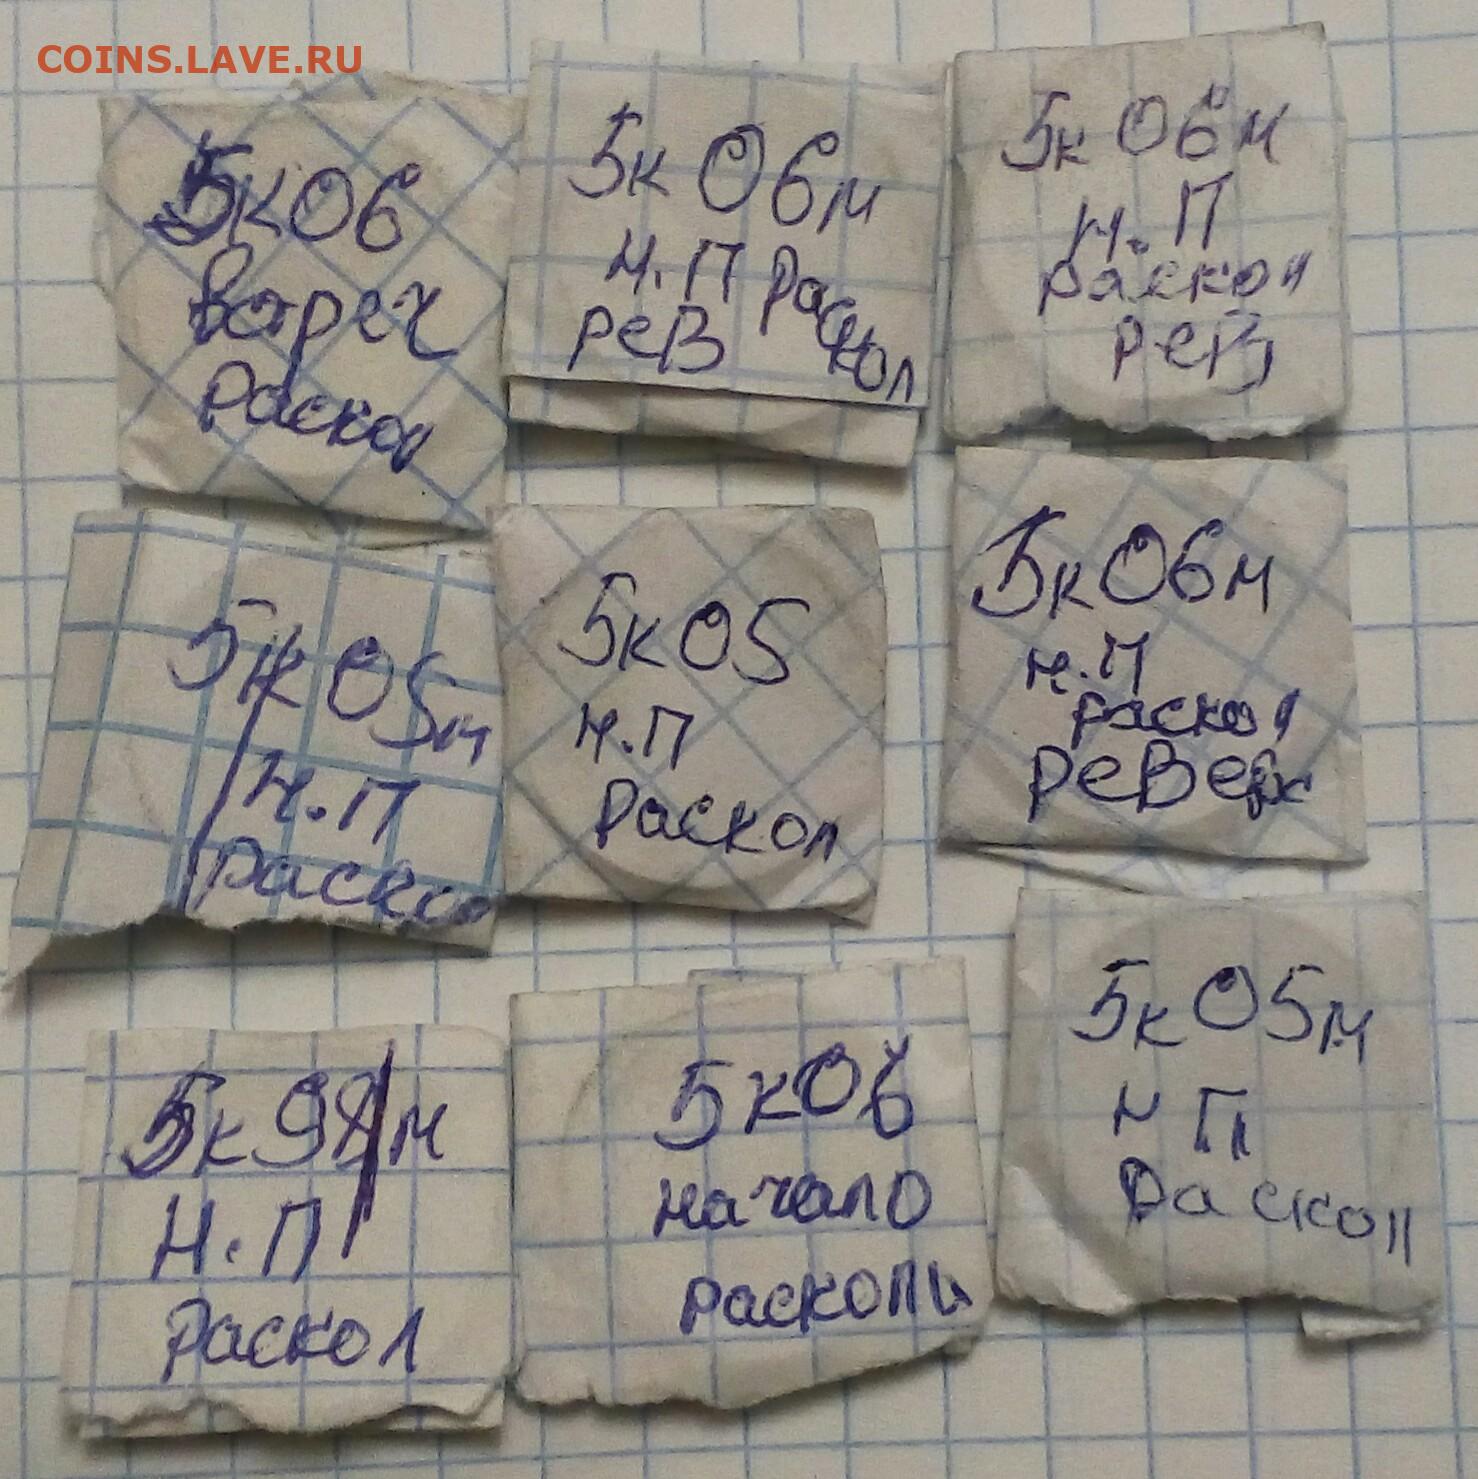 COINS.LAVE.RU
5к06
варех
раскол
5к 06м
н.П раскол
рев
5к 06м
н.П
раскол
рев
5к 05м
н.П
раско
5к 05
н.П
раскол
5к 06м
н.П
раскол
реверс
5к 9 м
н.П
раскол
5к 06
начало
расколы
5к 05м
н П
раскол